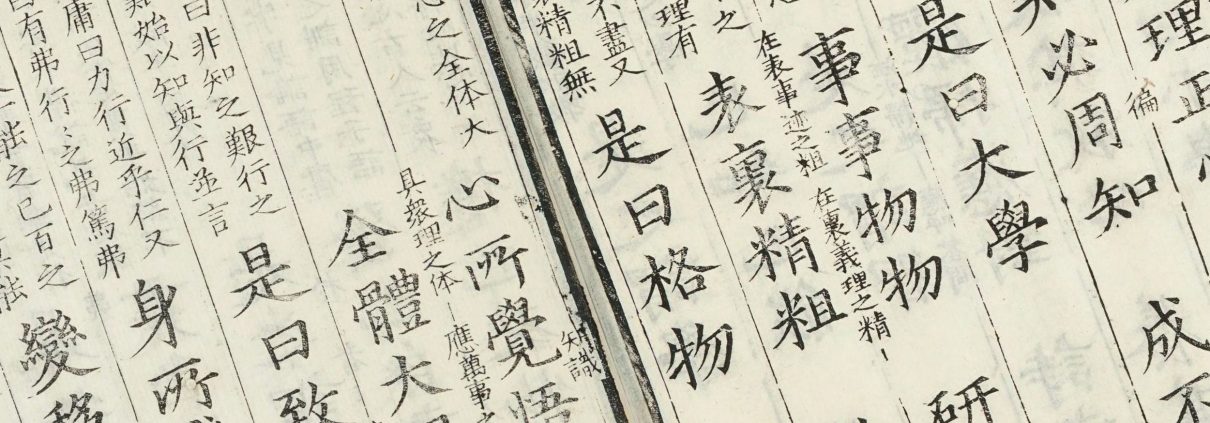 理正
必周知
徧
成不
是曰大學
事事物物
研
在表事迹之粗
在裏義理之精
表裏精粗
理有
不盡又
精粗無
是曰格物
之全体大
心所覺悟
知識
具衆理之体
應萬事之
全體大
曰非知之艱行之
始以知與行並言
是曰致
庸曰力行近乎仁又
有弗行〻之弗篤弗
身所
能之己百之
變移